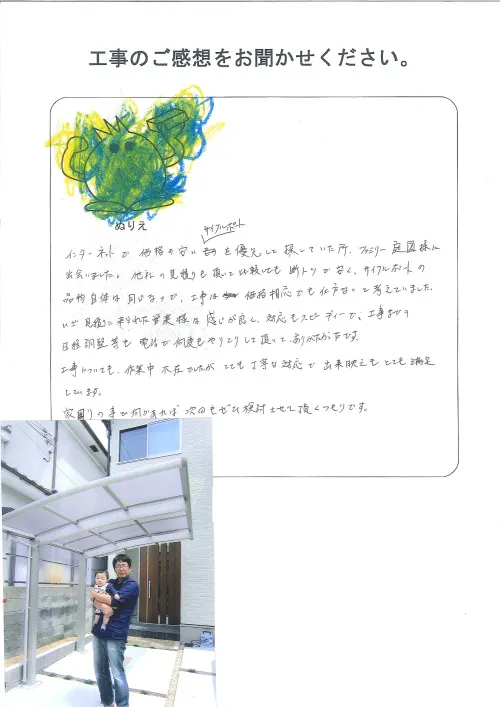 工事のご感想をお聞かせください。
ぬりえ
サイクルポート
インターネットで価格の安いを優先して探していた所、ファミリー庭園様に
出会いました。他社の見積りも頂いて比較しても断トツで安く、サイクルポートの
品物自体は同じなので、工事は価格相応でも仕方ないと考えていました。
いざ見積に来られた営業様は感じが良く、対応もスピーディーで、工事までの
日程調整等も電話で何度もやりとりして頂いて、ありがたかったです。
工事についても、作業中不在でしたがとても丁寧な対応で出来映えもとても満足
しています。
家周りの事で何かあれば次回もぜひ検討させて頂くつもりです。